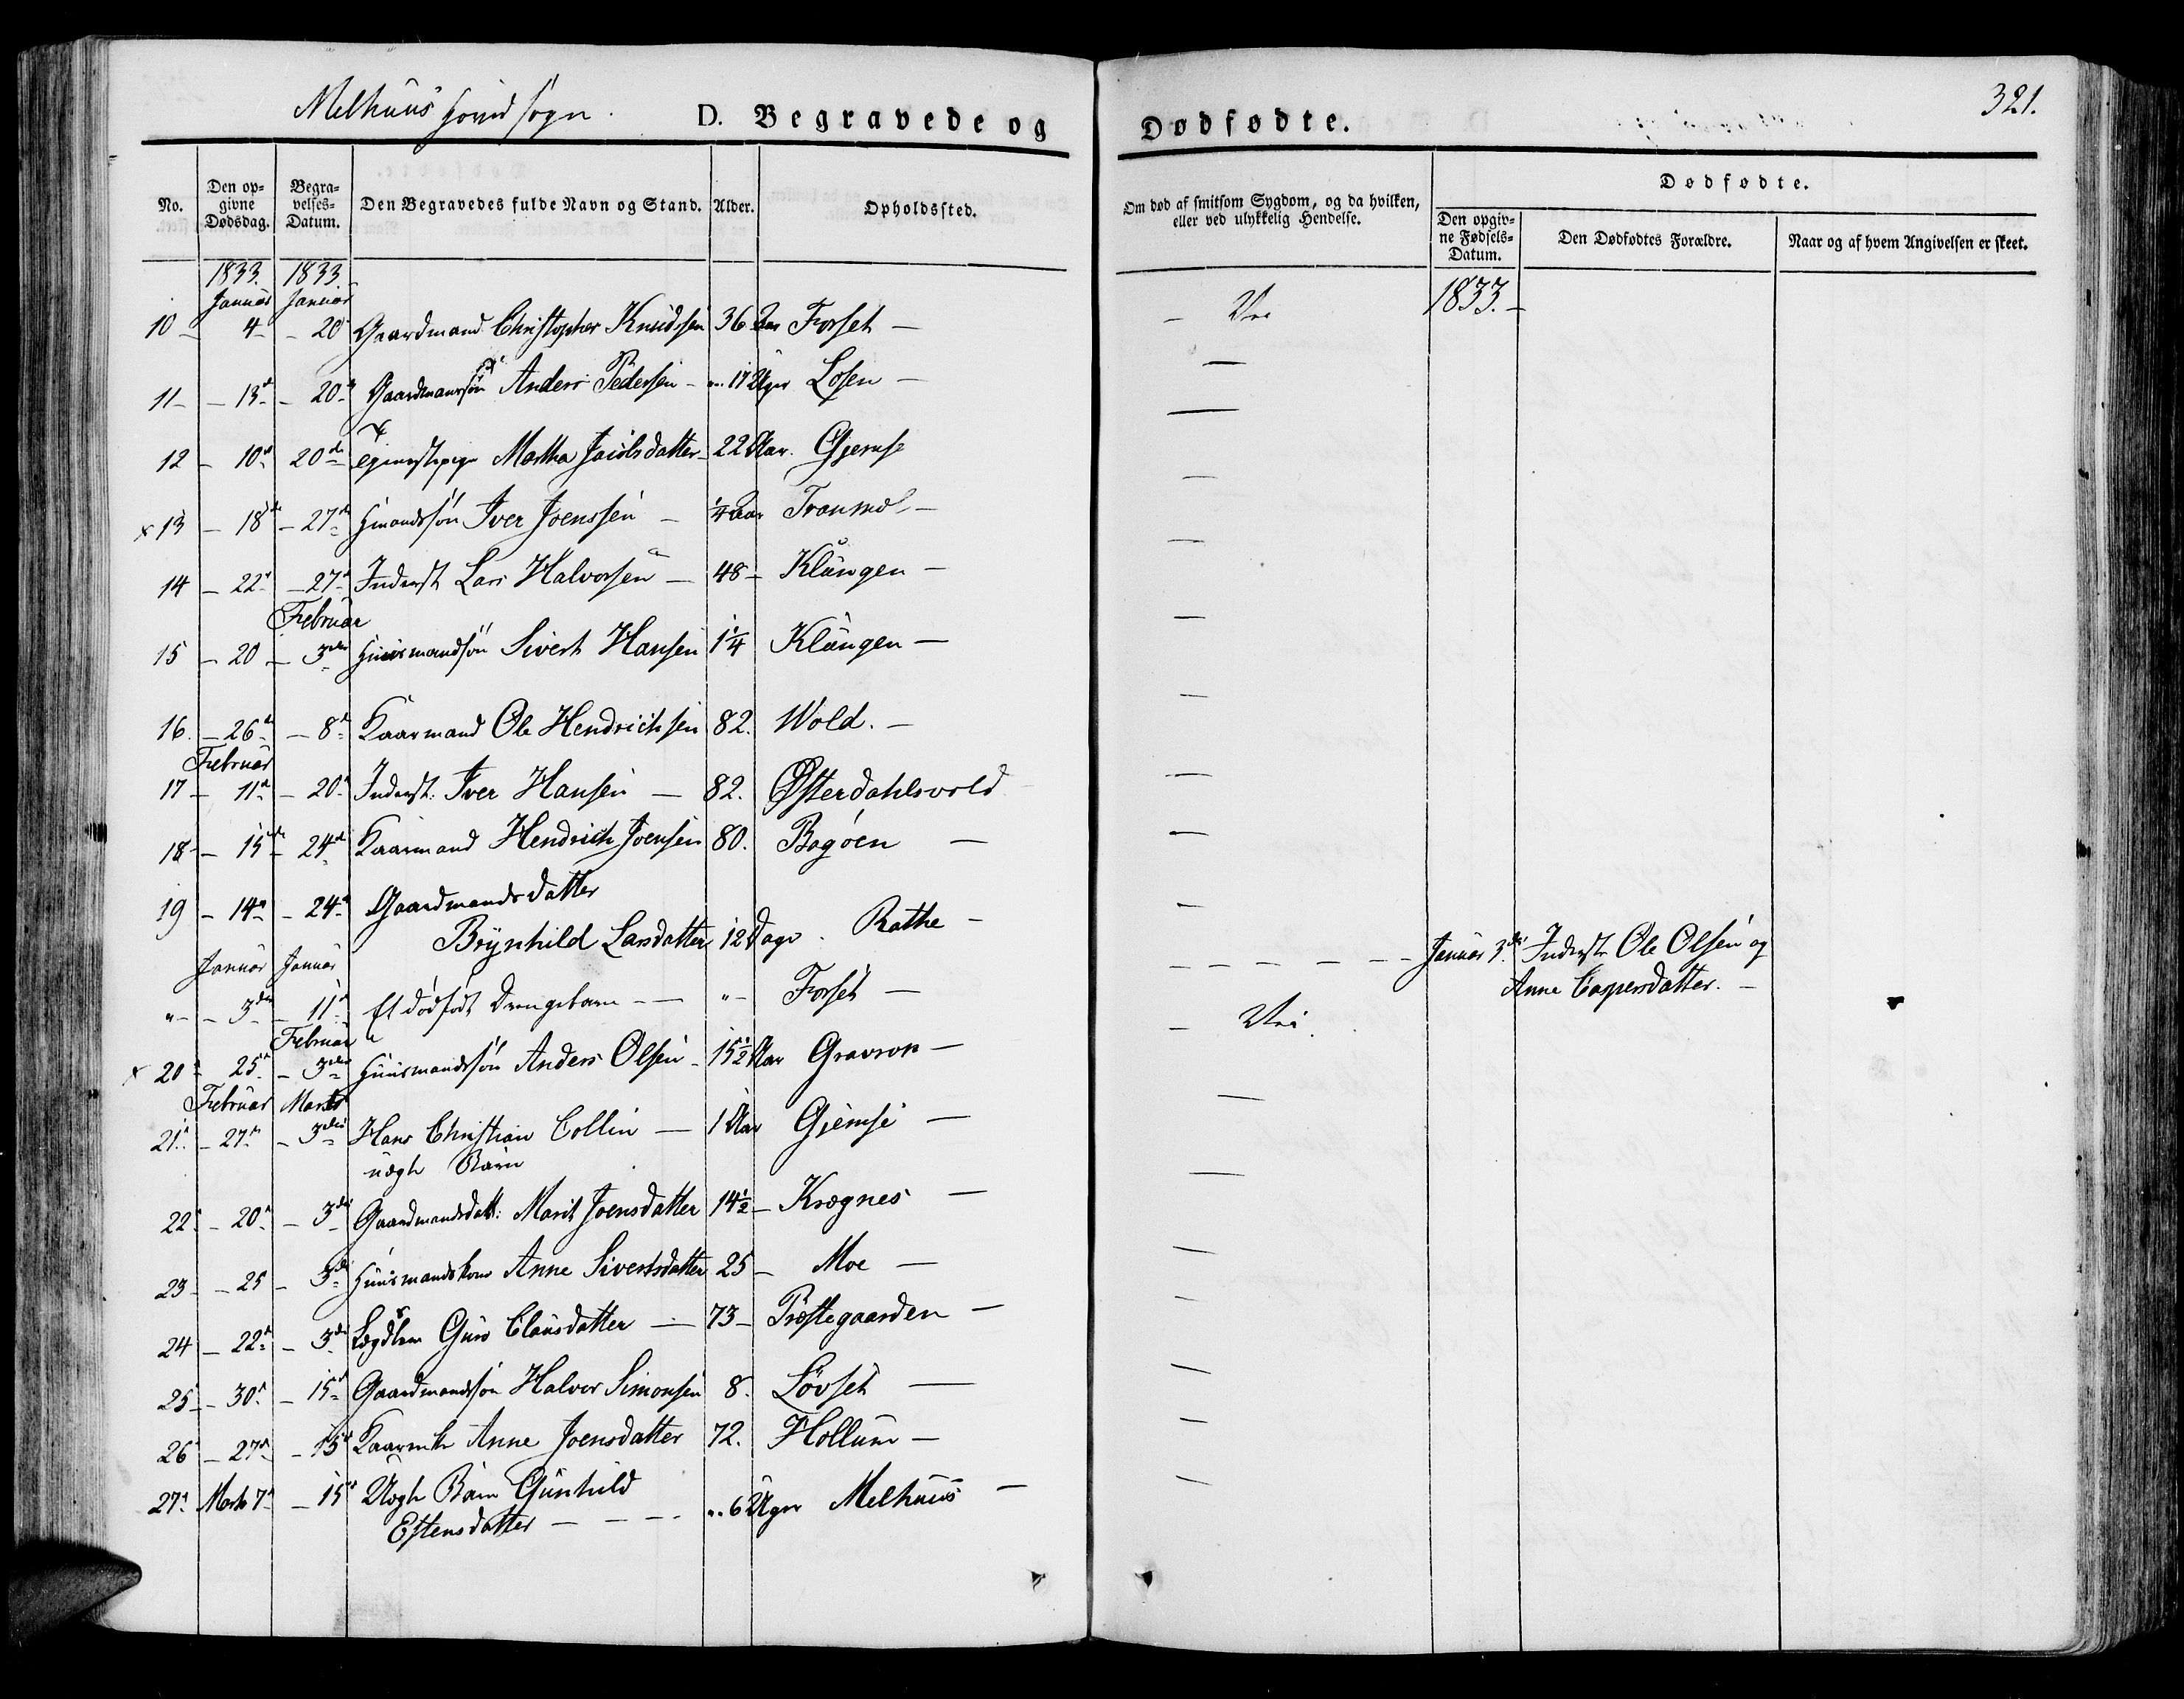 Melhuus hovidsogn.
D. Begravede og
Dødfødte.
321.
No.
Den opgivne Dødsdag.
Begravelses-Datum.
Den Begravedes fulde Navn og Stand.
Alder.
Opholdssted.
Om død af smitsom Sygdom, og da hvilken,
eller ved ulykkelig Hendelse.
Dødfødte.
Den opgivne Fødsels-Datum.
Den Dødfødtes Forældre.
Naar og af hvem Angivelsen er skeet.
1833. 1833.
Januar Januar
1833.-
10 - 4 - 20 Gaardmand Christopher Knudsen 36 Aar Forset -
11 - 13d - 20d Gaardmandssøn Anders Pedersen - " 17 Uger Losen -
12 - 10d 20de Tjenestepige Martha Jacobsdatter 22 Aar. Gjemse
x 13 - 18de - 27d Hmandssøn Iver Joenssen - 1/4 Aar Tranmæl -
14 - 22d - 27d Inderst Lars Halvorsen - 48 - Klungen -
Februar
15 - 20 - 3die Huusmandsøn Sivert Hansen 1 1/4 Klungen -
16. - 26d - 8d Kaarmand Ole Hendrichsen 82. Wold. -
Februar
17 - 11d - 20d Inderst. Iver Hansen - 82. Østerdahlsvold
18 - 15de - 24d Kaarmand Hendrich Joensen 80. Bagøen -
19 - 14d - 24d Gaardmandsdatter
Brynhild Larsdatter 12 Dage. Rathe -
Januar Januar
" - 3die - 11d Et dødfødt Drengebarn - - " - Forset -
Januar 3die Inderst Ole Olsen og
Anne Caspersdatter. -
Februar
x 20 - 25d - 3die Huusmandssøn Anders Olsen - 15 1/2 Aar Gravrok -
Februar Marts
21. - 27d - 3die Hans Christian Collin - 1 Aar Gjemse -
uægte Barn
22 - 20d - 3die Gaardmandsdatt: Marit Joensdatter 14 1/2 - Krognes -
23 - 25 - 3die Huusmandskone Anne Sivertsdatter 25 - Moe -
24 - 22d - 3die Lægdslem Guro Clausdatter - 73 - Præstegaarden -
25 - 30d - 15d Gaardmandsøn Halvor Simonsen 8. Løvset -
26 - 27d - 15d Kaarenke Anne Joensdatter 72. Hollum -
27. Marts 7d - 15d Uægte Barn Gunhild
Estensdatter - - - - " 6 Uger Melhuus -